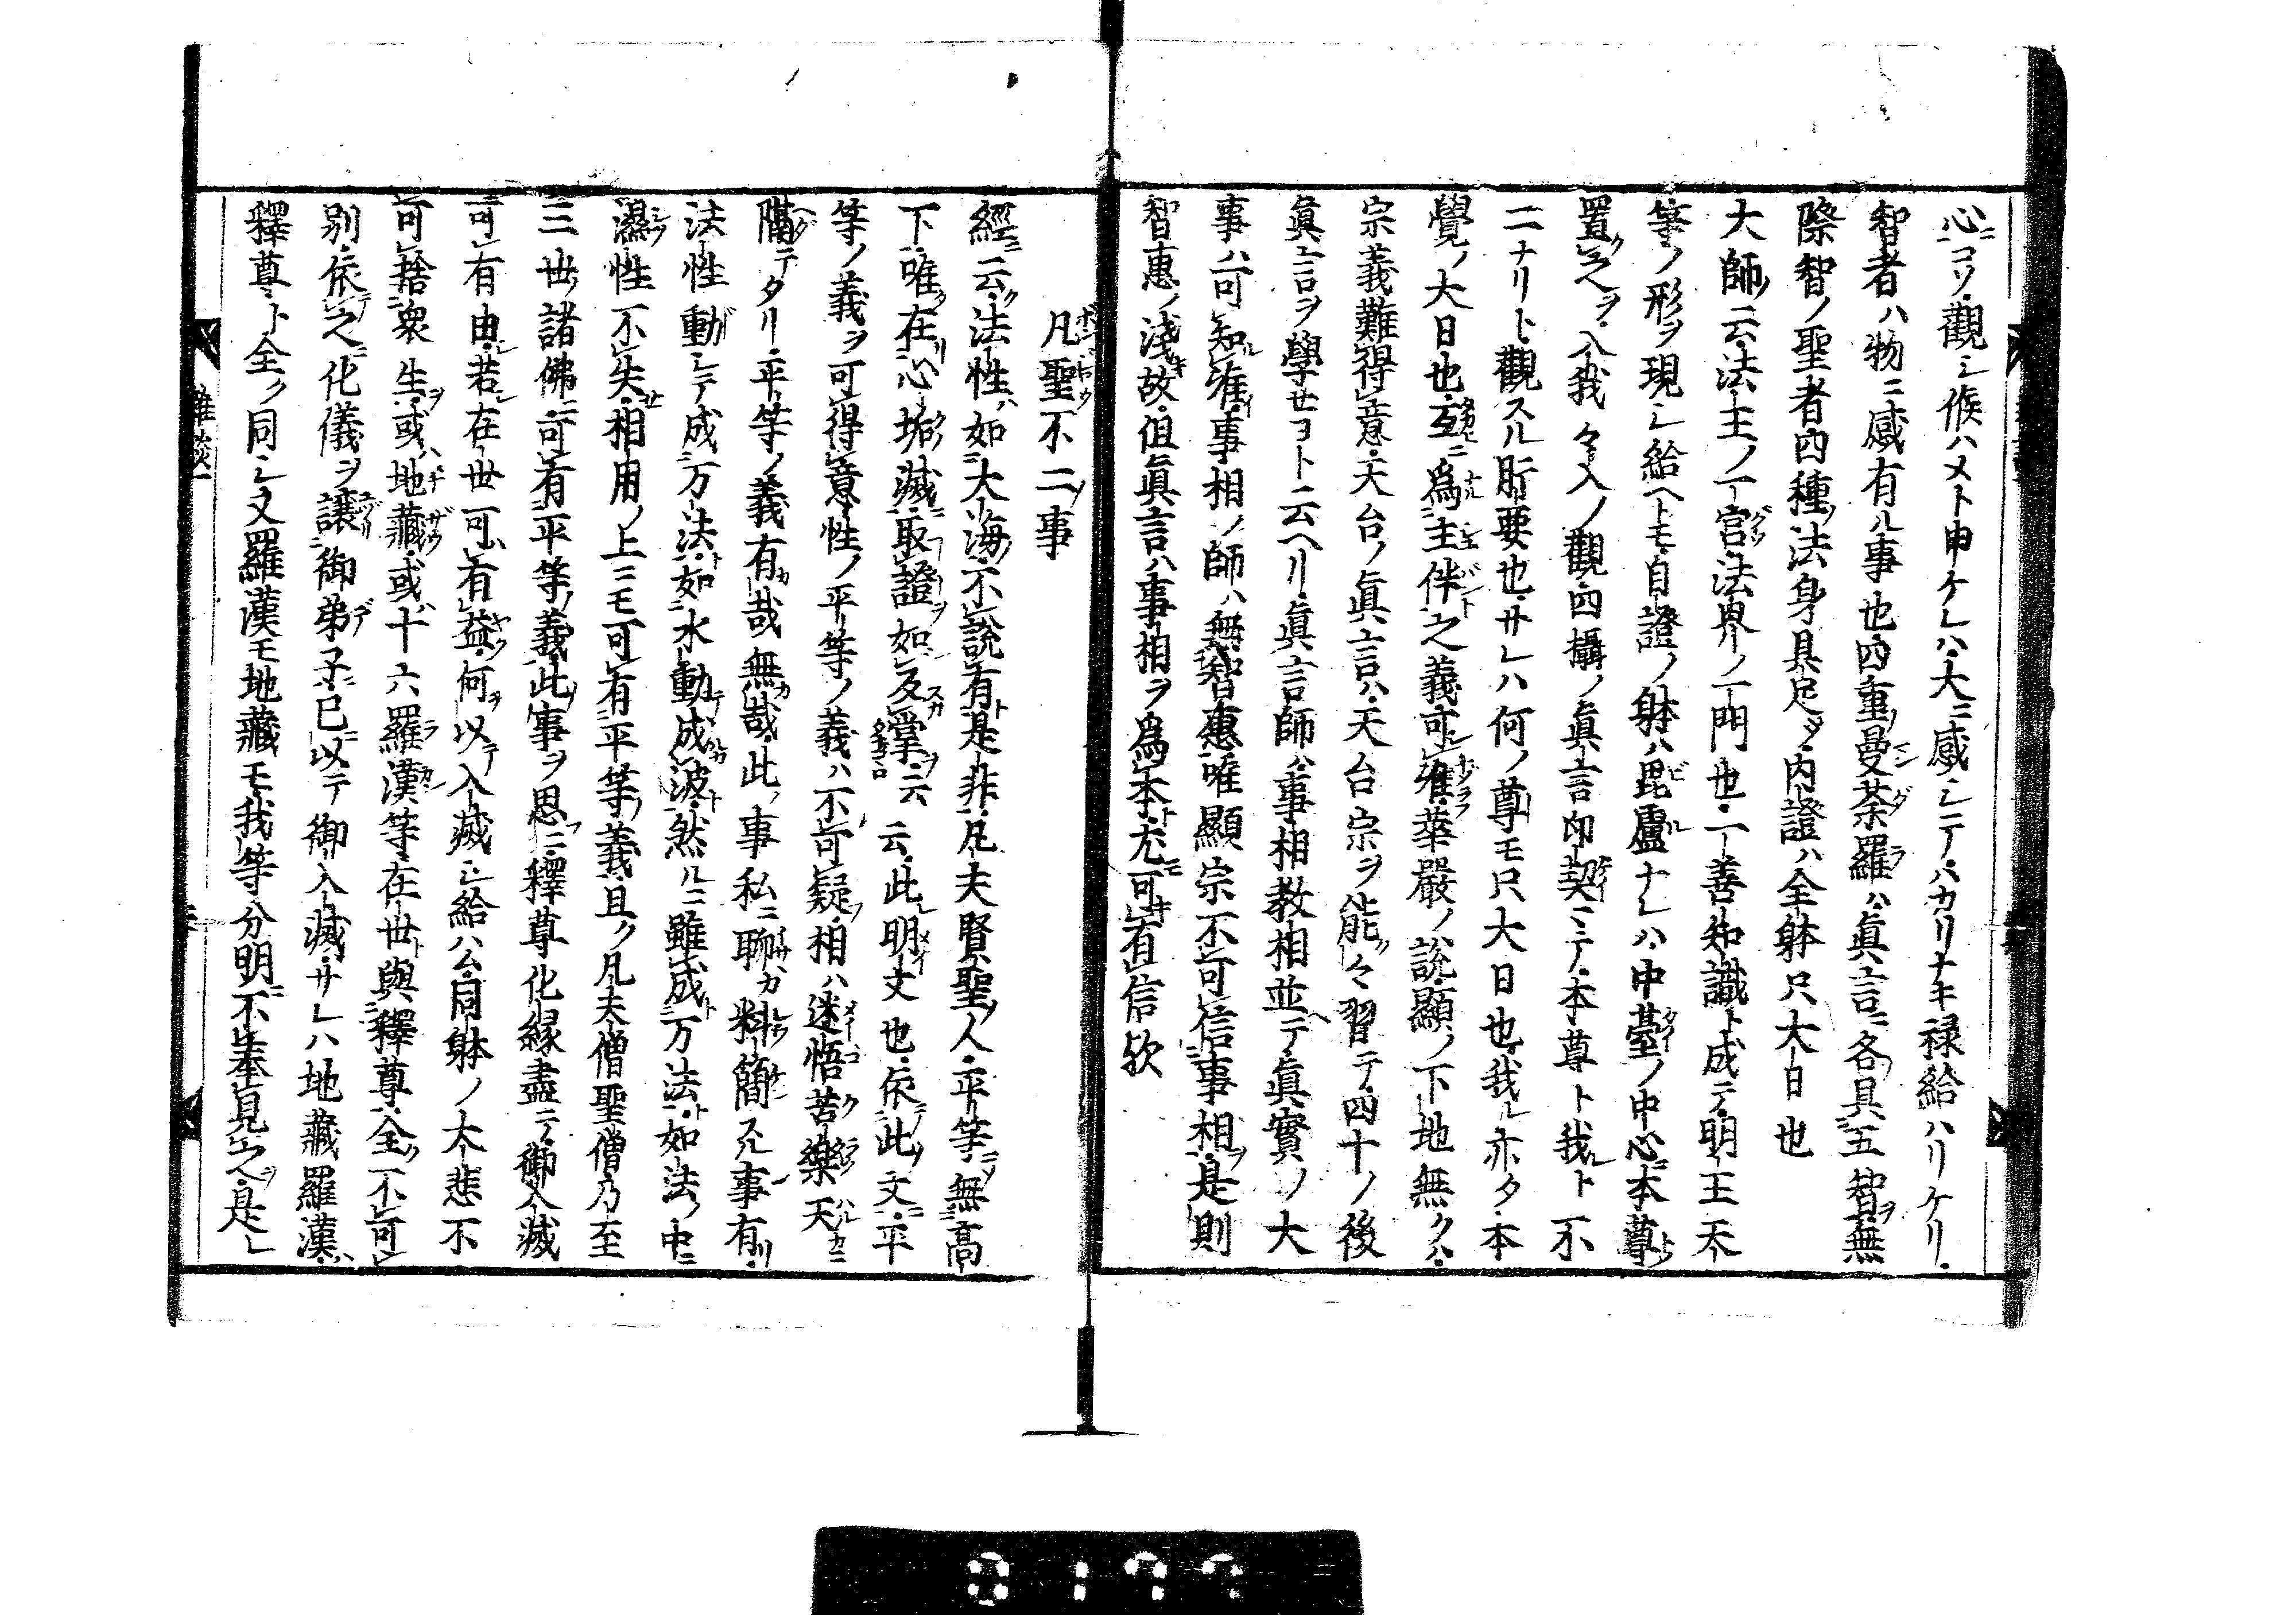 心ニコソ觀シ候ハメト申ケレハ大ニ感シテハカリナキ禄給ハリケリ
智者ハ物ニ感有ル事也四重曼荼羅ハ眞言ニ各具五智無
際智ノ聖者四種法身具足メ内證ハ全躰只大日也
大師云法王ノ一宮法界ノ一門也一善知識ト成テ明王天
等ノ形ヲ現シ給ヘトモ自證ノ躰ハ毘盧ナレハ中臺ノ中心本尊
置之ヲ入我々入ノ觀四攝ノ眞言印契ミテ本尊ト我ト不
二ナリト觀スル肝要也サレハ何ノ尊モ只大日也我レ亦タ本
覺ノ大日也互ニ爲主伴之義可准華嚴ノ説顯ノ下地無クハ
宗義難得意天台ノ眞言ハ天台宗ヲ能々習テ四十ノ後
眞言ヲ學セヨト云ヘリ眞言師ハ事相教相並テ眞實ノ大
事ハ可知唯事相ノ師ハ無智惠唯顯宗不可信事相是則
智惠ノ淺故但眞言ハ事相ヲ爲本尤可有信欤
凡聖不二ノ事
經ニ云法性ハ如大海不説有是非凡夫賢聖人平等無高
下唯在心垢滅取證如反掌云云此明文也依此文平
等ノ義ヲ可得意性ノ平等ノ義ハ不可疑相ハ迷悟苦樂天ニ
隔テタリ平等ノ義有哉無哉此事私ニ聊カ料簡スル事有リ
法性動シテ成万法如水動成波然ルニ雖成万法如法ノ中ニ
濕性不失相用ノ上ニモ可有平等ノ義且ク凡夫僧聖僧乃至
三世諸佛ニ可有平等ノ義此事ヲ思ニ釋尊化縁盡テ御入滅
可有由若在世可有益何ヲ以テ入滅シ給ハム同躰ノ大悲不
可捨衆生ヲ或ハ地藏或ハ十六羅漢等在世與釋尊全ク不可
別依之化儀ヲ讓御弟子已ニ以テ御入滅サレハ地藏羅漢ハ
釋尊ト全ク同シ又羅漢モ地藏モ我等分明ニ不奉見之是レ
雜談一